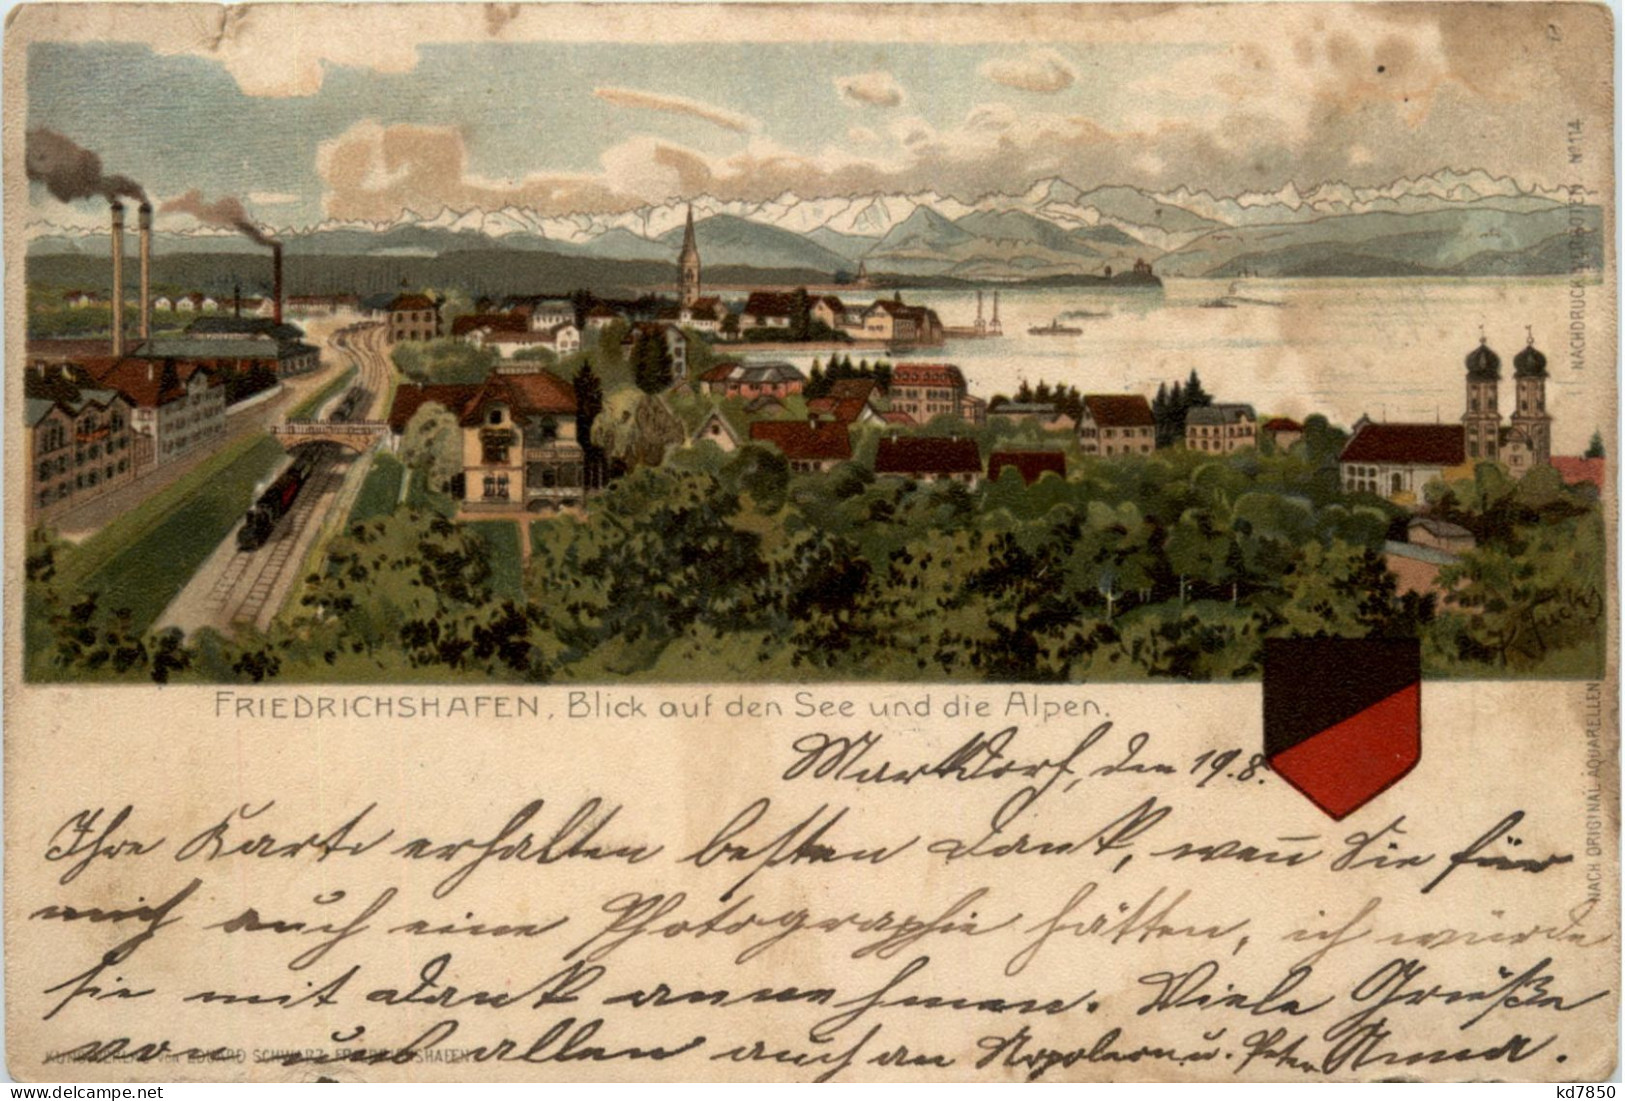 Nº 114
NACHDRUCK VERBOTEN
K. Fuchs
NACH ORIGINAL AQUARELLEN
FRIEDRICHSHAFEN, Blick auf den See und die Alpen.
Markdorf, den 19.8.
Ihre Karte erhalten besten Dank, weñ Sie für
mich auch eine Photographie hätten, ich würde
sie mit Dank annehmen. Viele Grüße
von uns allen auch an Napoleon u. Peter Anna.
KUNSTVERLAG von EDUARD SCHWARZ, FRIEDRICHSHAFEN
kd7850